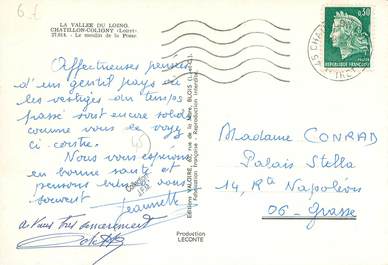 LA VALLEE DU LOING
CHATILLON-COLIGNY (Loiret)
Le moulin de la Fosse
Affectueuses pensées
d'un gentil pays où
les vestiges du temps
passé sont encore solides
comme vous le voyez
ci-contre.
Nous vous espérons
en bonne santé et
pensons bien à vous
souvent
Jeannette
Editions VALOIRE, rue de la Mare, BLOIS (L.-et-C.)
Fabrication Française - Reproduction interdite
Production
LECONTE
0,30
REPUBLIQUE FRANÇAISE
45 CHATILLON
Madame CONRAD
Palais Stella
14, Rte Napoléon
06 - Grasse
45